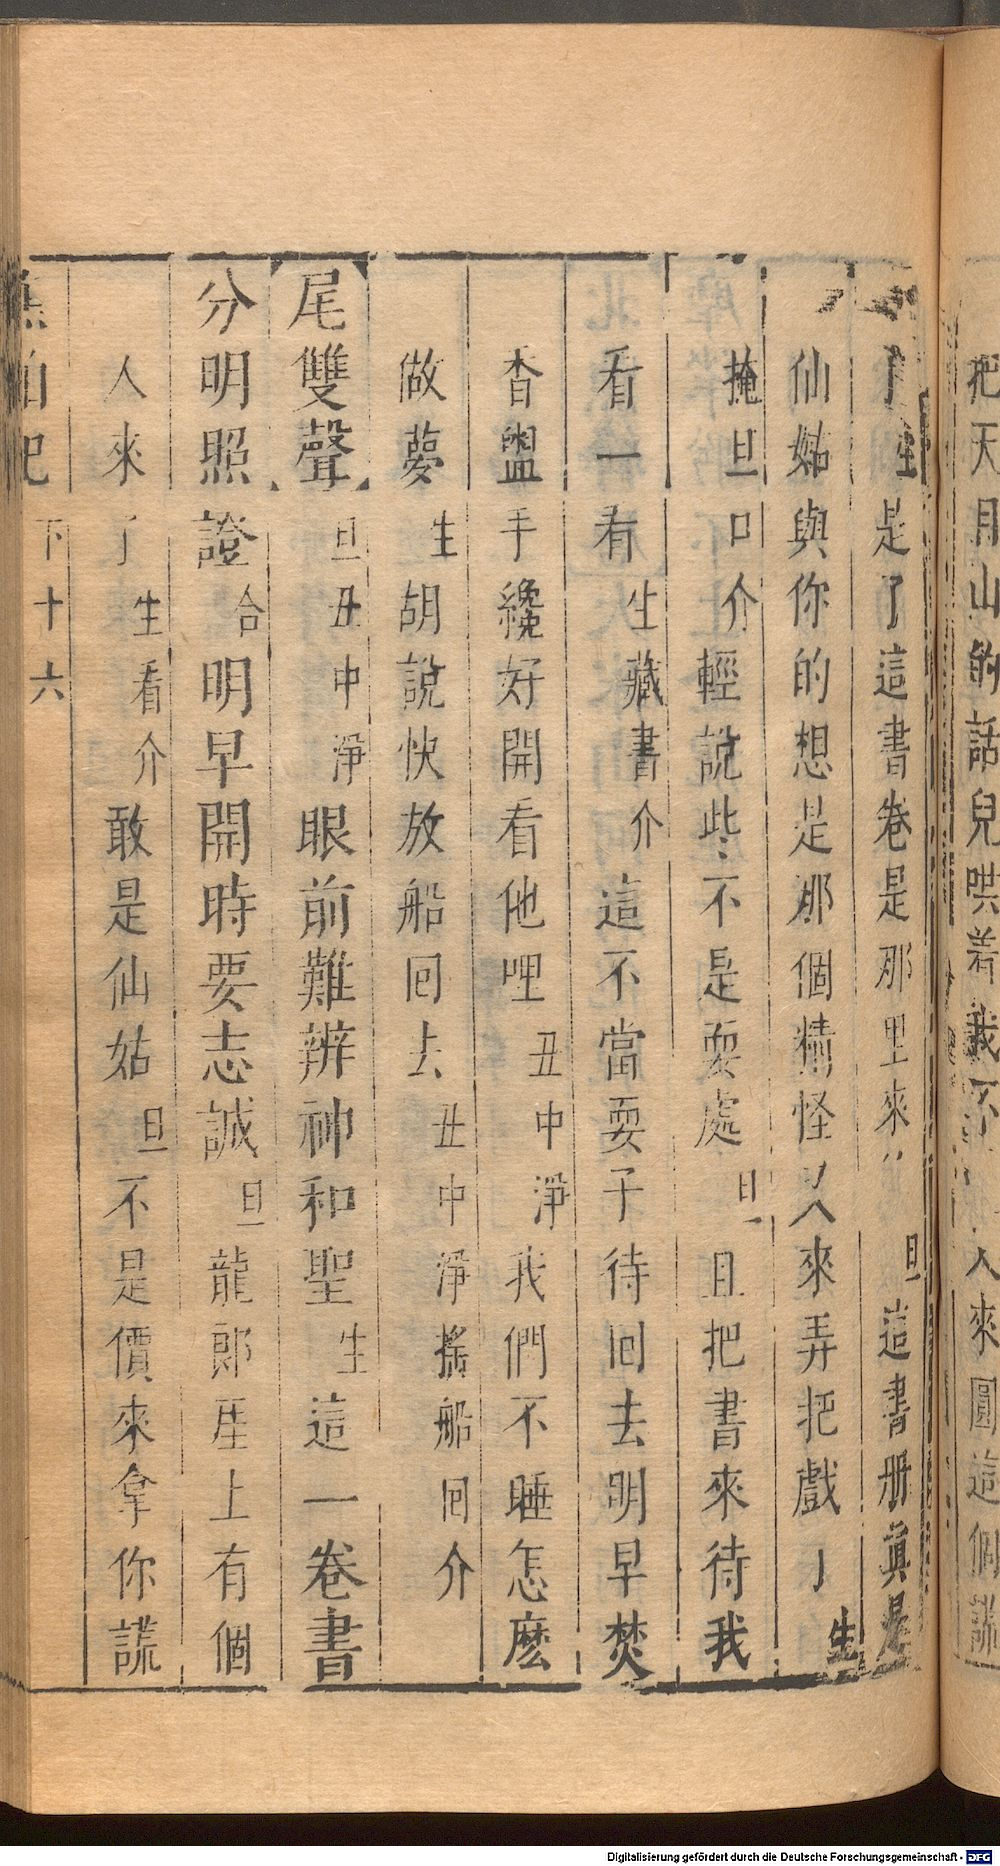 把天月山的話兒哄着我不人來圓這個謊
了生是了這書卷是那里來旦這書册眞是
仙姑與你的想是那個精怪人來弄把戲了生
掩旦口介輕說些不是耍處旦且把書來待我
看一看生藏書介這不當耍子待回去明早焚
香盥手纔好開看他哩丑中淨我們不睡怎麽
做夢生胡說快放船回去丑中淨搖船回介
尾雙聲旦丑中淨眼前難辨神和聖生這一卷書
分明照證合明早開時要志誠旦龍郎厓上有個
人來了生看介敢是仙姑旦不是價來拿你謊
下十六
Digitalisierung gefördert durch die Deutsche Forschungsgemeinschaft - DFG